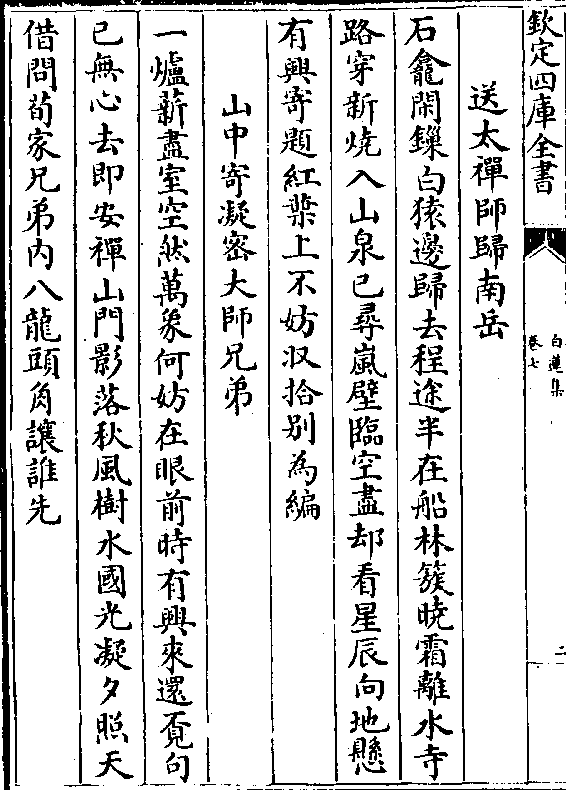 欽定四庫全書
白蓮集
卷七
二
送太禪師歸南岳
石龕閑鏁白猿邊歸去程途半在船林簇曉霜離水寺
路穿新燒入山泉已尋嵐壁臨空盡却看星辰向地懸
有興寄題紅葉上不妨収拾別為編
山中寄凝密大師兄弟
一爐薪盡室空然萬象何妨在眼前時有興來還覔句
已無心去即安禪山門影落秋風樹水國光凝夕照天
借問荀家兄弟内八龍頭角讓誰先